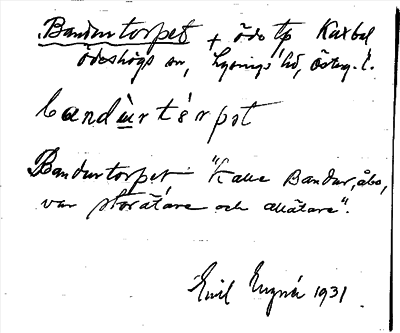 Bandurtorpet + öde tp Kaxbol
Ödeshögs sn, Lysings hd, Österg. l.
bandùrtérpst
Bandurtorpet "Kalle Bandur, åbo,
var storätare och allätare".
Emil 1931